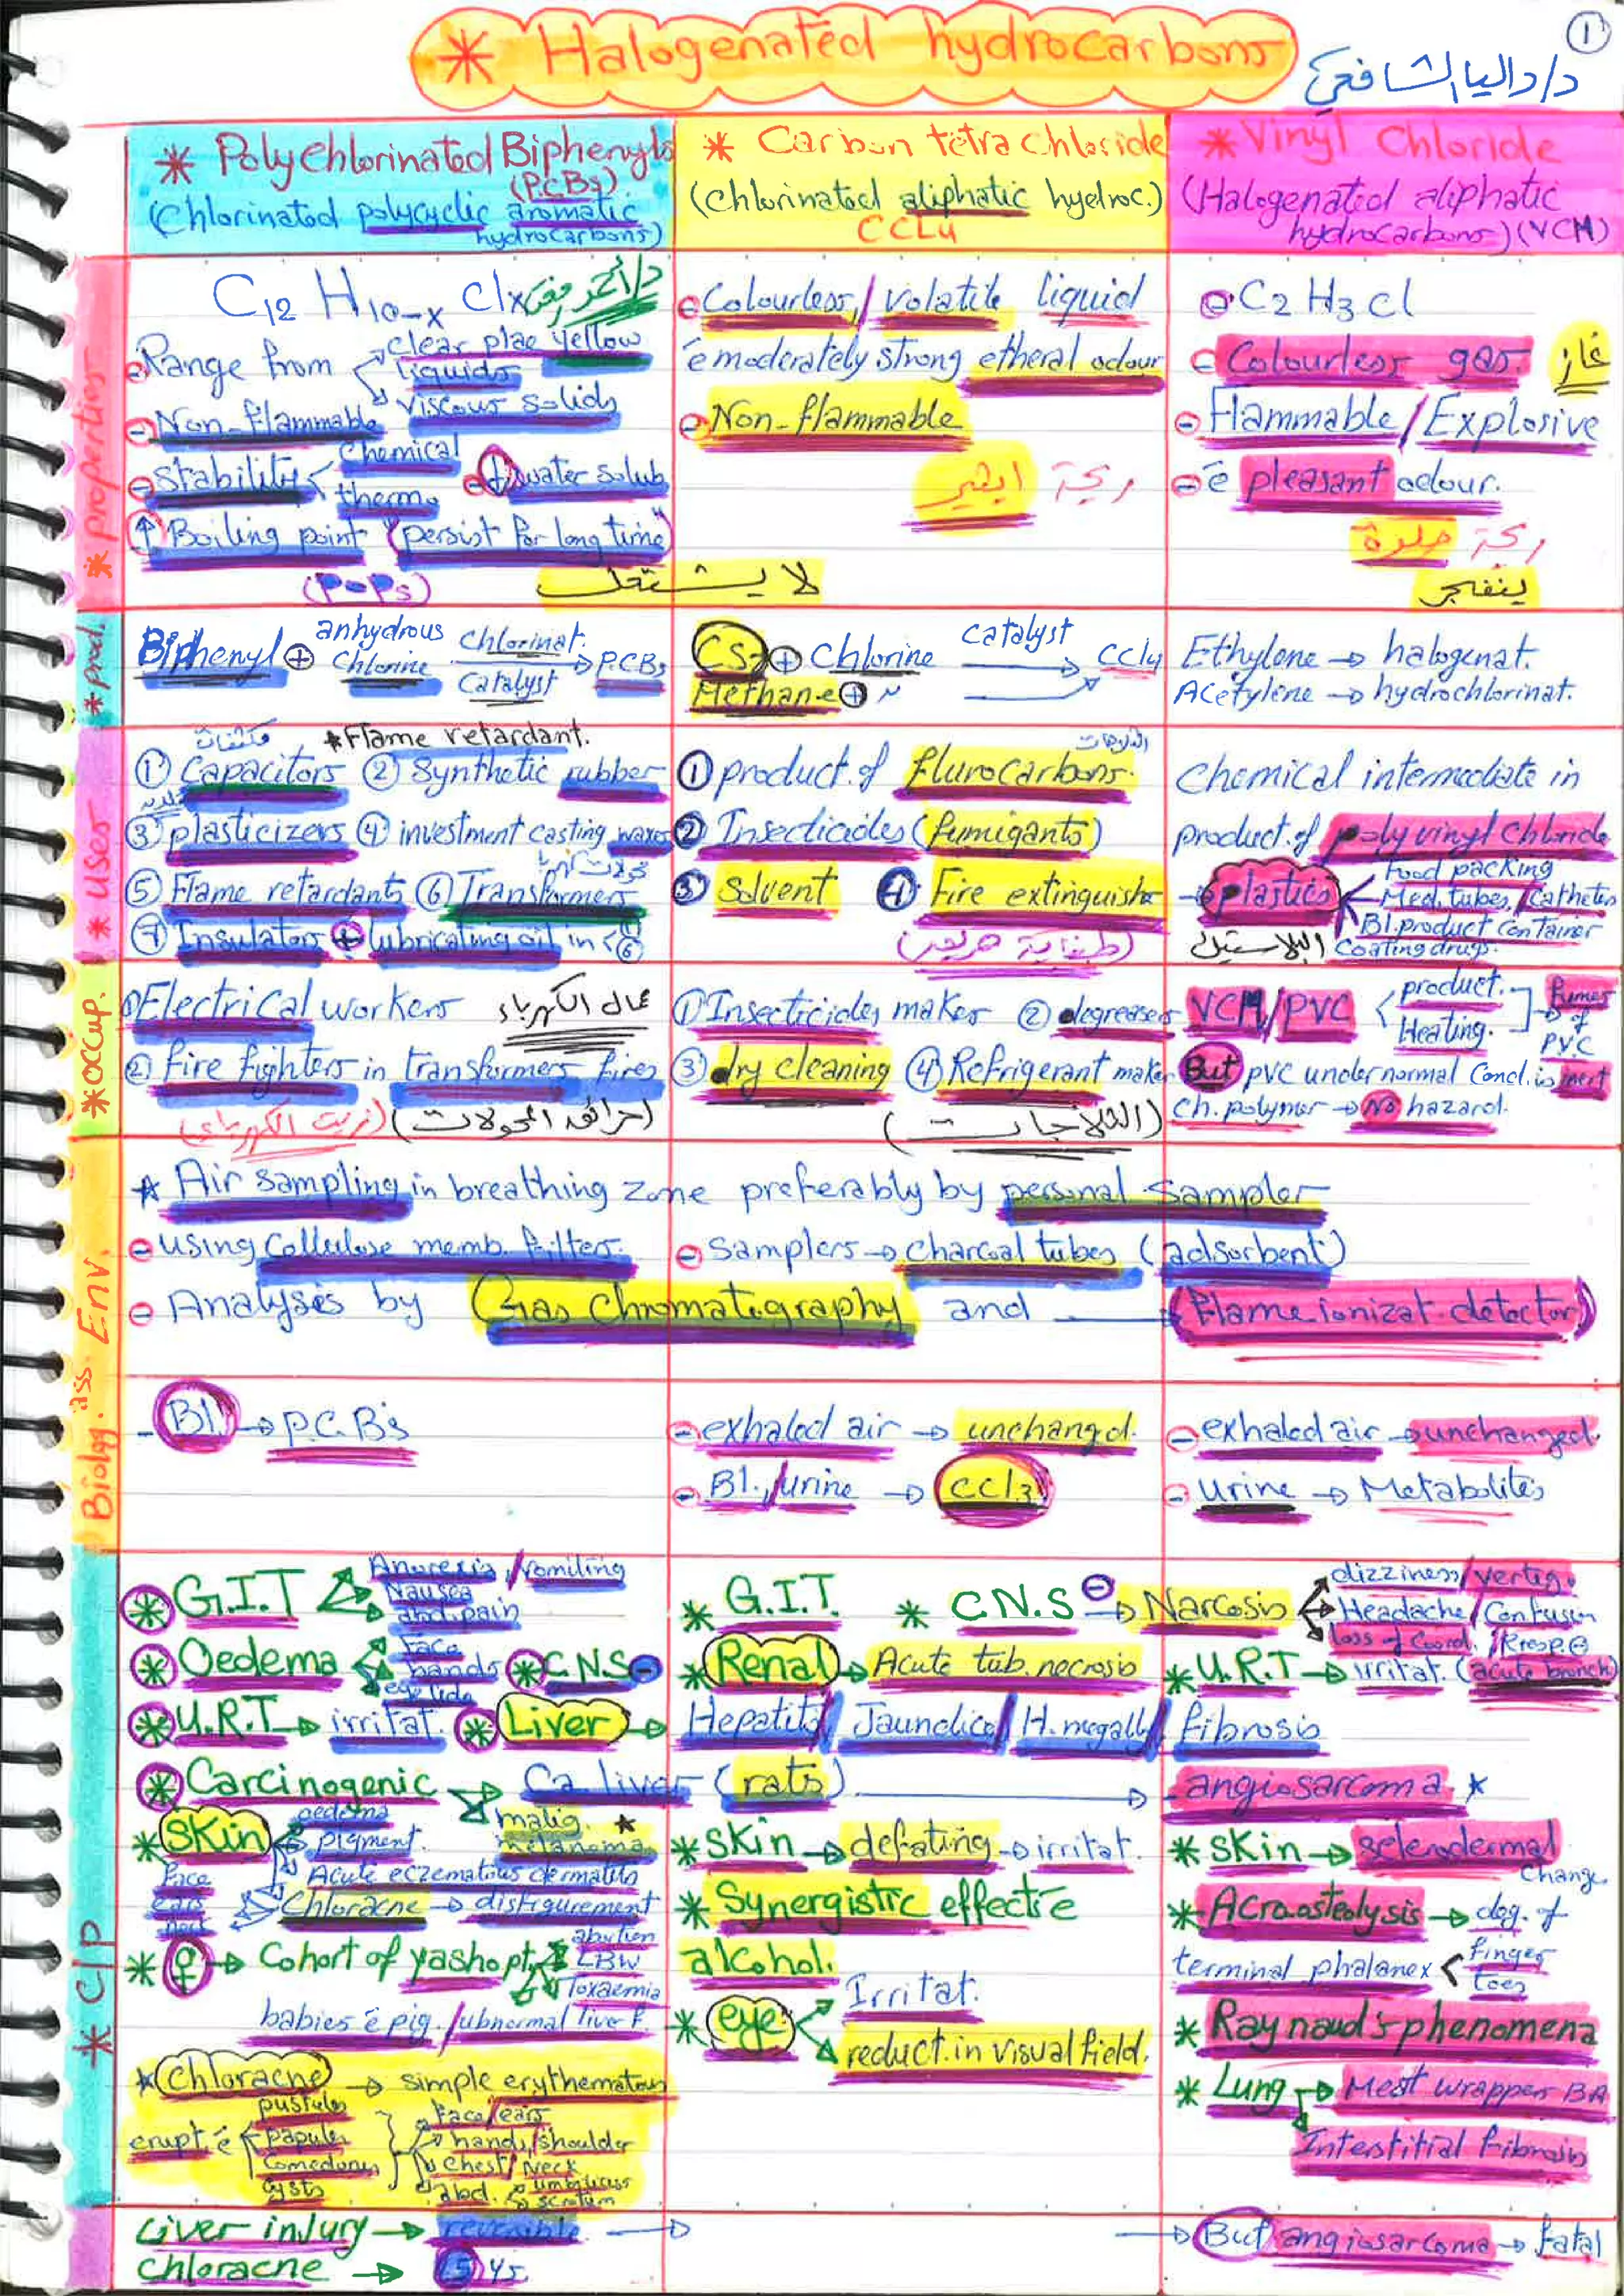 * Halogenated hydrocarbons
1
د/داليا الشافعي
* Polychlorinated Biphenyls
(P.C.Bs)
(Chlorinated polycyclic aromatic
hydrocarbons)
* Carbon tetra chloride
(Chlorinated aliphatic hydroc.)
CCL4
* Vinyl Chloride
(Halogenated aliphatic
hydrocarbons) (VCM)
* properties
C12 H10-x Clx
Range from
clear plae yellow
liquids
viscous solids
- Non-flammable
- Stability
Chemical
thermo
↓ water solub.
↑ Boiling point "persist for long time"
(POPs)
لا يشتعل
- Colourless / volatile liquid
ē moderately strong etheral odour
- Non-flammable
ريحة ايثير
- C2 H3 Cl
- Colourless gas.
غاز
- Flammable / Explosive
- ē pleasant odour.
ريحة حلوة
ينفجر
* prod.
Biphenyl + anhydrous Chlorine
Chlorinat.
Catalyst
→ P.C.Bs
CS2 + Chlorine catalyst → CCl4
Methane + 〃 →
Ethylene → halogenat.
Acetylene → hydrochlorinat.
* Uses
مكثفات
* Flame retardant.
① Capacitors ② Synthetic rubber
③ plasticizers ④ investment casting waxes
⑤ Flame retardants ⑥ Transformers
⑦ Insulators + lubricating oil in < ① ⑥
① product. of flurocarbons.
② Insecticides (fumigants)
③ Solvent ④ Fire extinguisher
(طفاية حريق)
Chemical intermediate in
product. of poly vinyl chloride
→ plastics
Food packing
Med. tubes / Catheters
Bl. product container
Coating drugs.
البلاستيك
* occup.
① Electrical workers عمال الكهرباء
② Fire fighters in transformers fires
(حرائق المحولات) (زيت الكهرباء)
① Insecticides maker ② degreasers
③ dry cleaning ④ Refrigerant maker
(الثلاجات)
VCM/PVC
product.
Heating.
→ fumes of PVC
But PVC under normal Cond. is inert
Ch. polymer → No hazard.
Env.
* Air sampling in breathing zone preferably by personal sampler
- using Cellulose memb. filters. - Samplers → Charcoal tubes (adsorbent)
- Analyses by Gas Chromatography and → (Flame ionizat. detector)
Biolog. ass.
- Bl. → P.C.B's
- exhaled air → unchangd.
- Bl., urine → CCl3
- exhaled air → unchanged.
- urine → Metabolites
* C/P
* G.I.T
Anorexia / vomiting
Nausea
abd. pain
* Oedema
face
hands
eye lids
* C.N.S -
* U.R.T → irritat.
* Liver → Hepatitis / Jaundice / H. megally / fibrosis
* G.I.T. * C.N.S - → Narcosis
dizziness / vertigo
Headache / Confusion
loss of Coord. / Resp. -
* Renal → Acute tub. necrosis
* U.R.T → irritat. (acute bronch.)
* Carcinogenic → Ca liver (rats) → angiosarcoma *
malig. melanoma *
* Skin
oedema
pigment.
Acute eczematous dermatitis
Chloracne → disfigurement
face
ears
neck
* ♀ → Cohort of yasho pt.
abortion
LBW
Toxaemia
babies ē pig. / ubnormal liver f.
* Chloracne → simple erythematous
erupt. ē
pustules
papules
Comedones
cysts
face / ears
hands / shoulder
chest / neck
abd.
umbilicus
scrotum
* Skin → defating → irritat.
* Synergistic effect ē
alcohol.
* eye
Irritat.
reduct. in visual field.
* Skin → sclerodermal
change.
* Acro.osteolysis → deg. of
terminal phalanex
finger
toes
* Raynaud's phenomena
* Lung → Meat wrapper BA
Interstitial fibrosis
Liver injury → reversible →
→ But angiosarcoma → fatal
Chloracne → 15 ys.